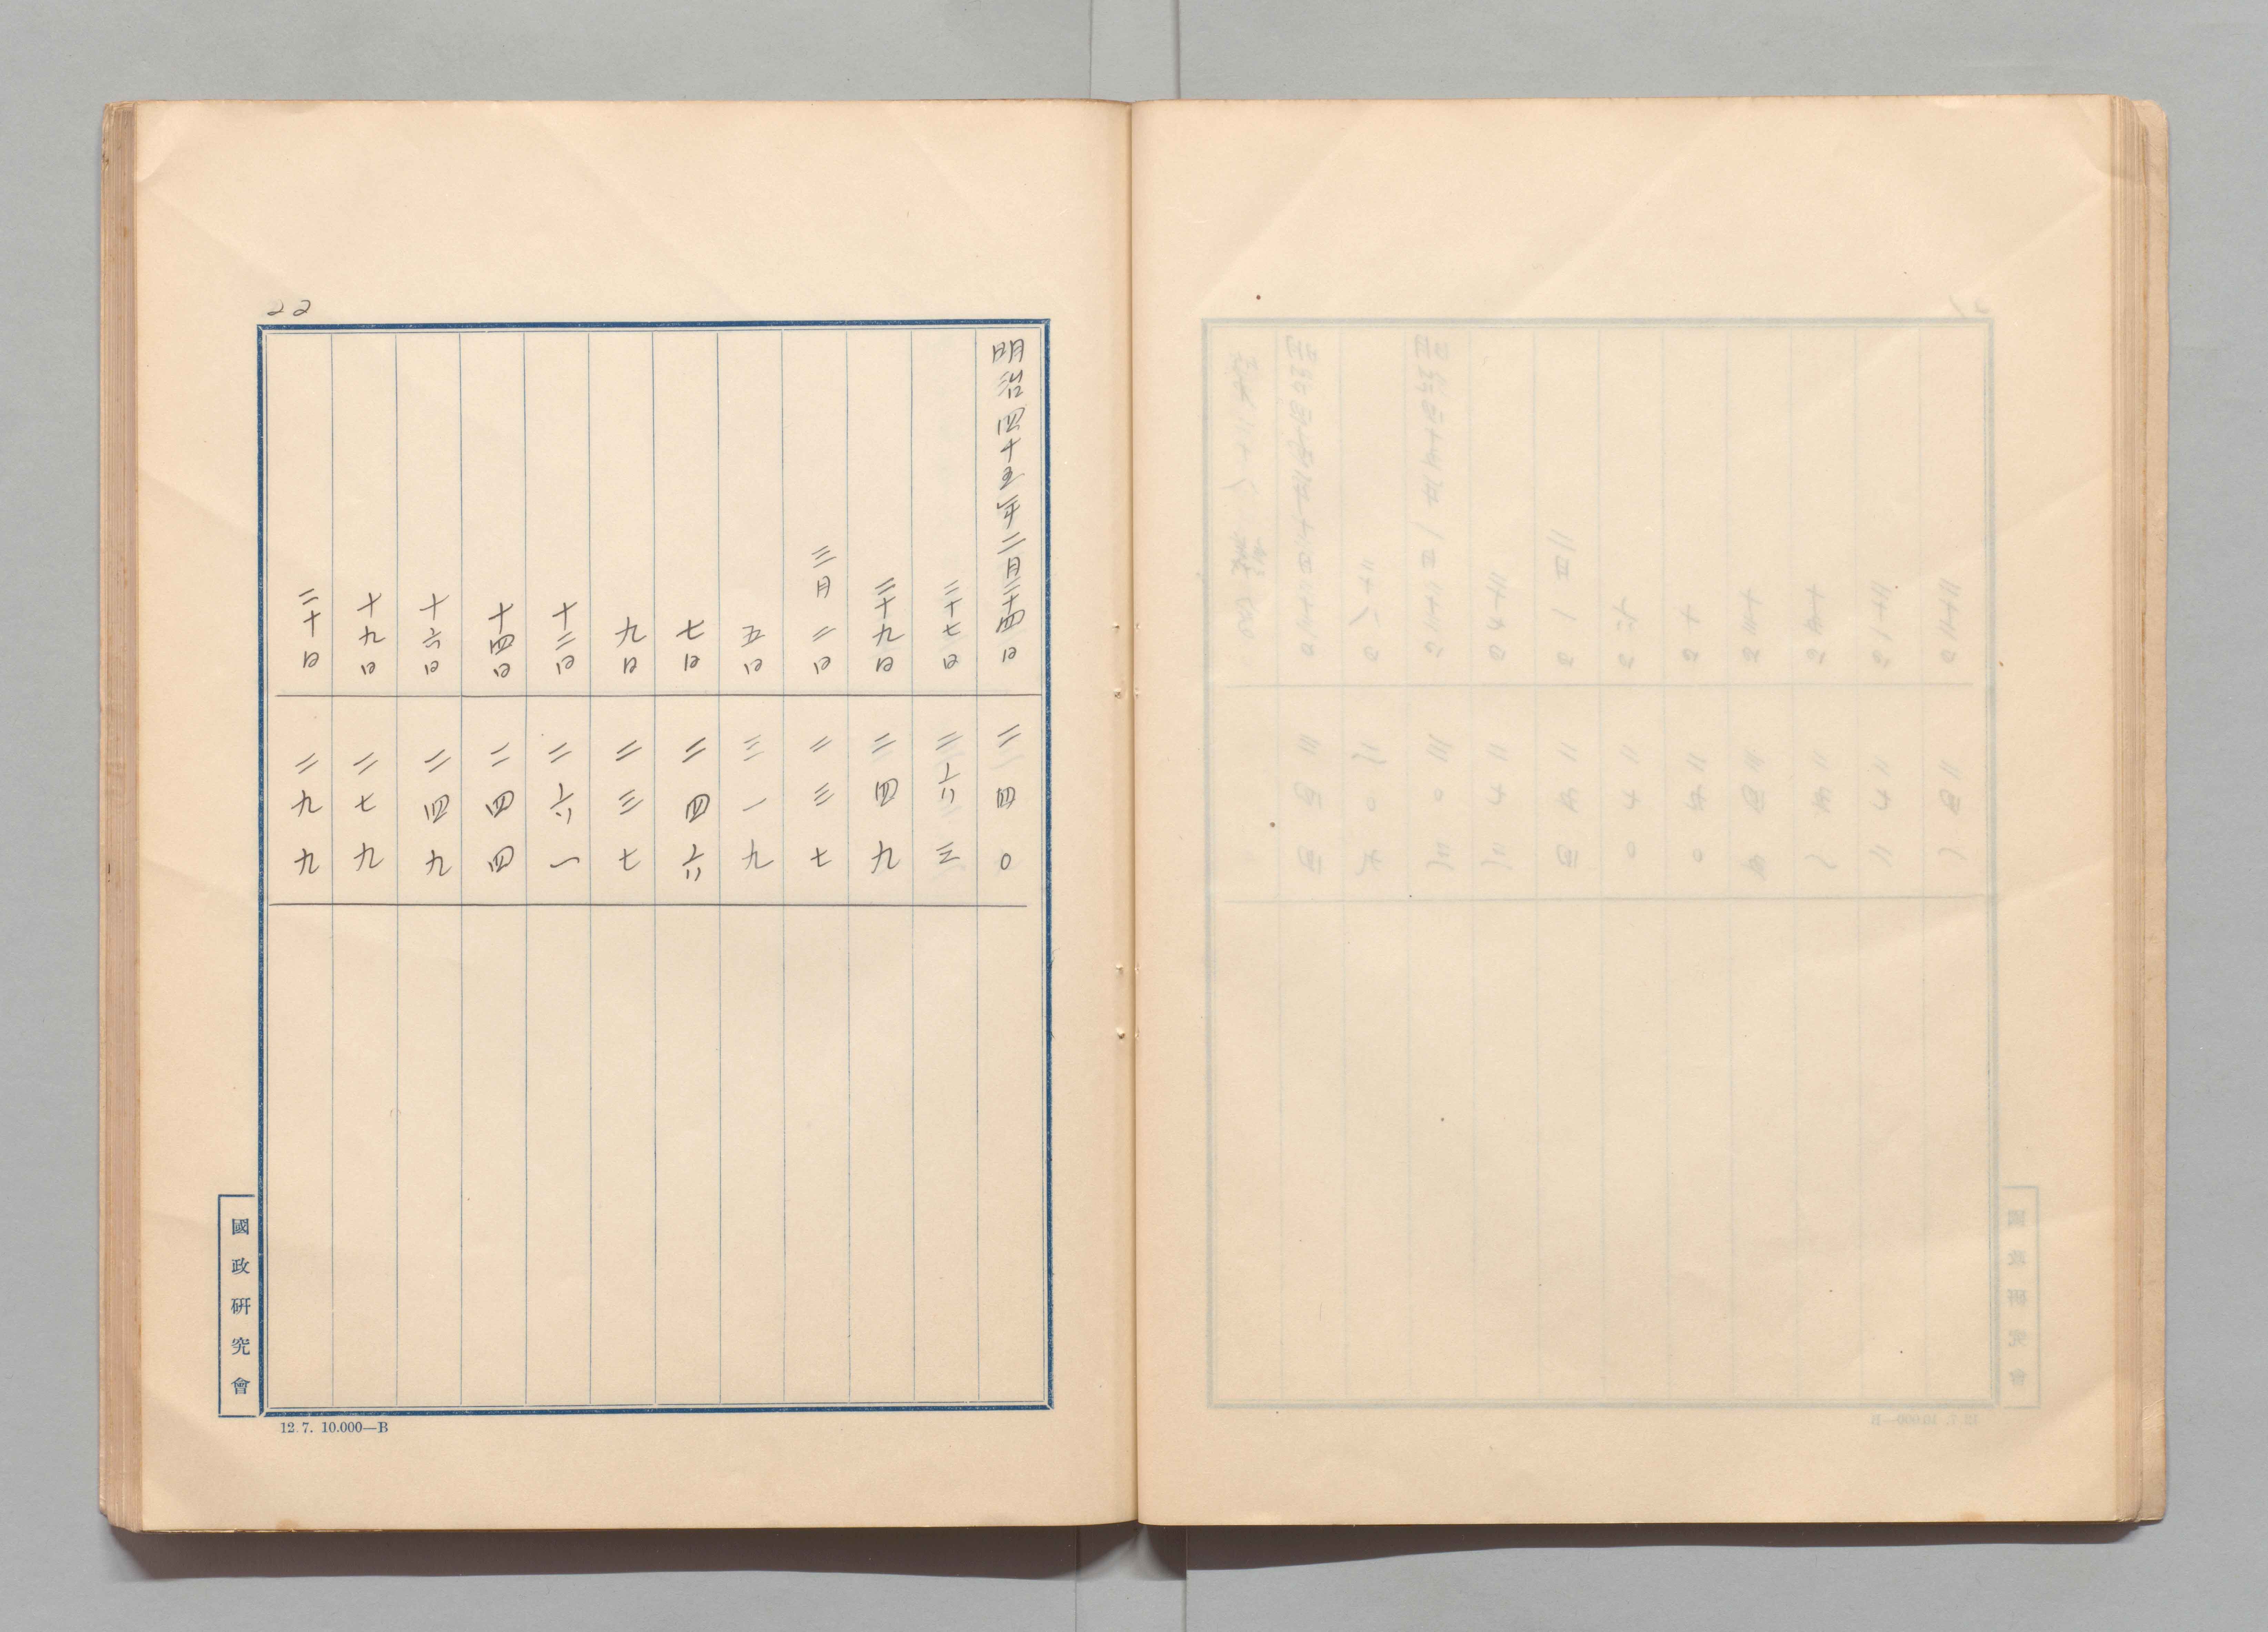 22
明治四十五年二月二十四日 二四〇
二十七日 二六三
二十九日 二四九
三月二日 二三七
五日 三一九
七日 二四六
九日 二三七
十二日 二六一
十四日 二四四
十六日 二四九
十九日 二七九
二十日 二九九
國政研究會
12.7. 10.000—B